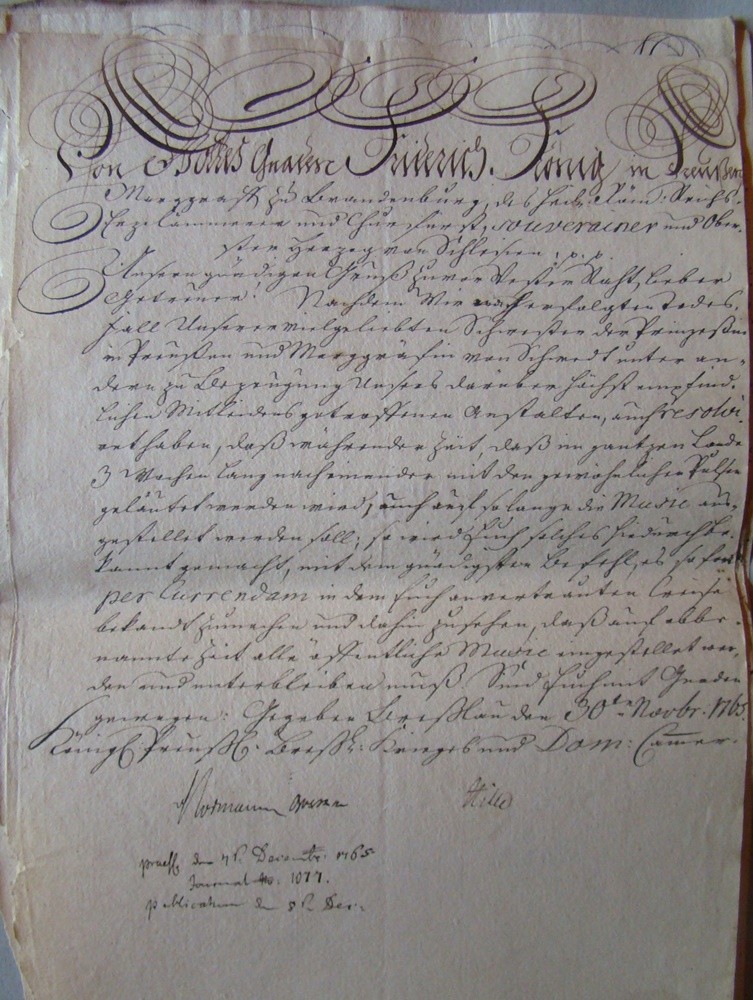 Von Gottes Gnaden Friderich, König in Preußen
Marggraff zu Brandenburg, des Heil. Röm: Reichs-
Ertz Cämmerer und Churfürst, souverainer und Ober-
ster Hertzog von Schlesien, p. p.
Unsern gnädigen Gruß zuvor Vester Raht, lieber
Getreuer! Nachdem Wir nach erfolgten Todes-
fall Unserer vielgeliebten Schwester der Prinzeßin
in Preußen und Marggräfin von Schwedt unter an-
dern zu Bezeugung Unsers darüber höchst empfind-
lichen Mitleidens getroffenen Anstalten, auch resolvi-
ret haben, daß währender Zeit, daß im gantzen Lande
3 Wochen lang nach einander mit den gewöhnlichen Pulsen
geläutet werden wird, auch auf so lange die Music ein-
gestellet werden soll; so wird Euch solches hiedurch be-
kannt gemacht, mit dem gnädigsten Befehl, es sofort
per Currendam in dem Euch anvertrauten Creise
bekandt zu machen und dahin zu sehen, daß auf obbe-
nannte Zeit alle öffentliche Music eingestellet wer-
den und unterbleiben muß. Sind Euch mit Gnaden
gewogen. Gegeben Breßlau den 30ten Novbr. 1765
Königl. Preußl. Breßl. Krieges und Dom: Camer.
Hille
praes. den 4t. Decembr. 1765
Journal No: 1077.
publicatum den 5t. Dec.